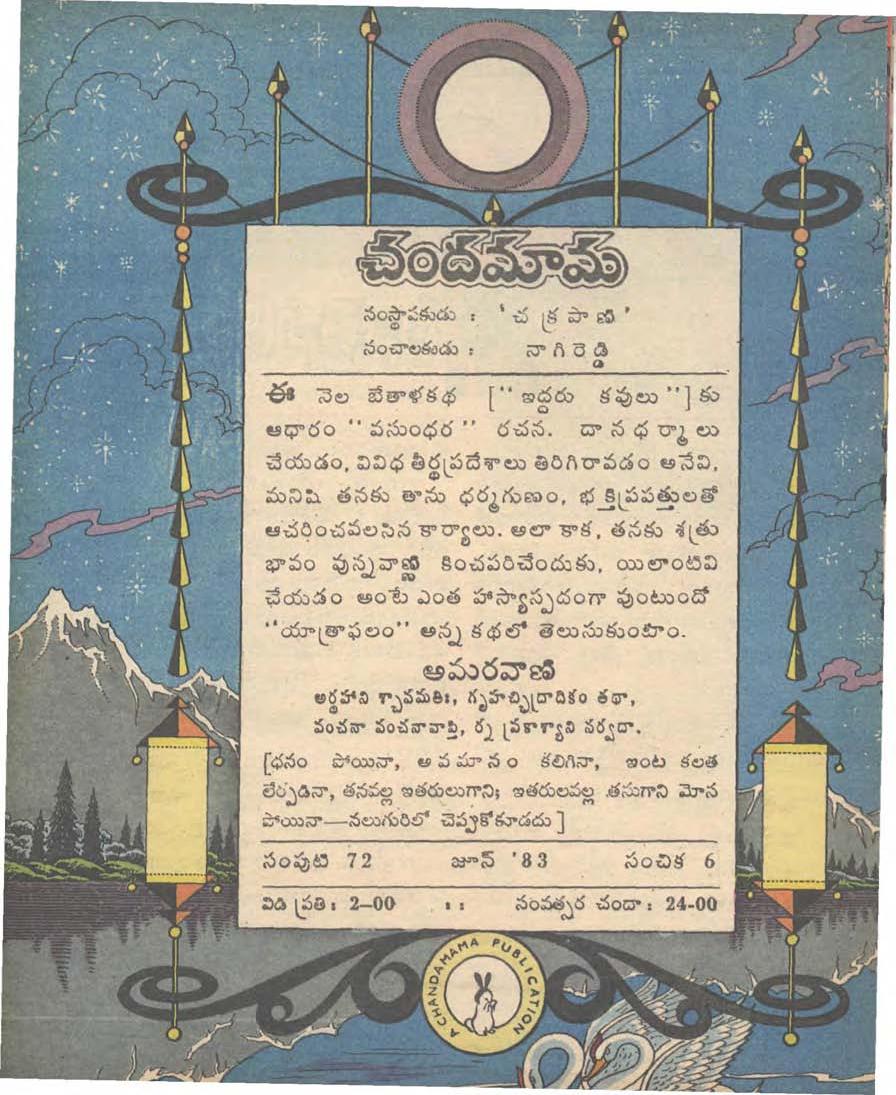 చందమామ
సంస్థాపకుడు : ‘చక్రపాణి’
సంచాలకుడు : నాగిరెడ్డి
ఈ నెల బేతాళకథ [“ఇద్దరు కవులు”] కు
ఆధారం “వసుంధర” రచన. దానధర్మాలు
చేయడం, వివిధ తీర్థప్రదేశాలు తిరిగిరావడం అనేవి,
మనిషి తనకు తాను ధర్మగుణం, భక్తిప్రపత్తులతో
ఆచరించవలసిన కార్యాలు. అలా కాక, తనకు శత్రు
భావం వున్నవాణ్ణి కించపరిచేందుకు, యిలాంటివి
చేయడం అంటే ఎంత హాస్యాస్పదంగా వుంటుందో
“యాత్రాఫలం” అన్న కథలో తెలుసుకుంటాం.
అమరవాణి
అర్థహాని శ్చావమతిః, గృహచ్ఛిద్రాదికం తథా,
వంచనా వంచనావాప్తి, ర్న ప్రకాశ్యాని సర్వదా.
[ధనం పోయినా, అవమానం కలిగినా, ఇంట కలత
లేర్పడినా, తనవల్ల ఇతరులుగాని; ఇతరులవల్ల తనుగాని మోస
పోయినా—నలుగురిలో చెప్పుకోకూడదు]
సంపుటి 72 జూన్ '83 సంచిక 6
విడి ప్రతి : 2–00 : : సంవత్సర చందా : 24-00
A CHANDAMAMA PUBLICATION